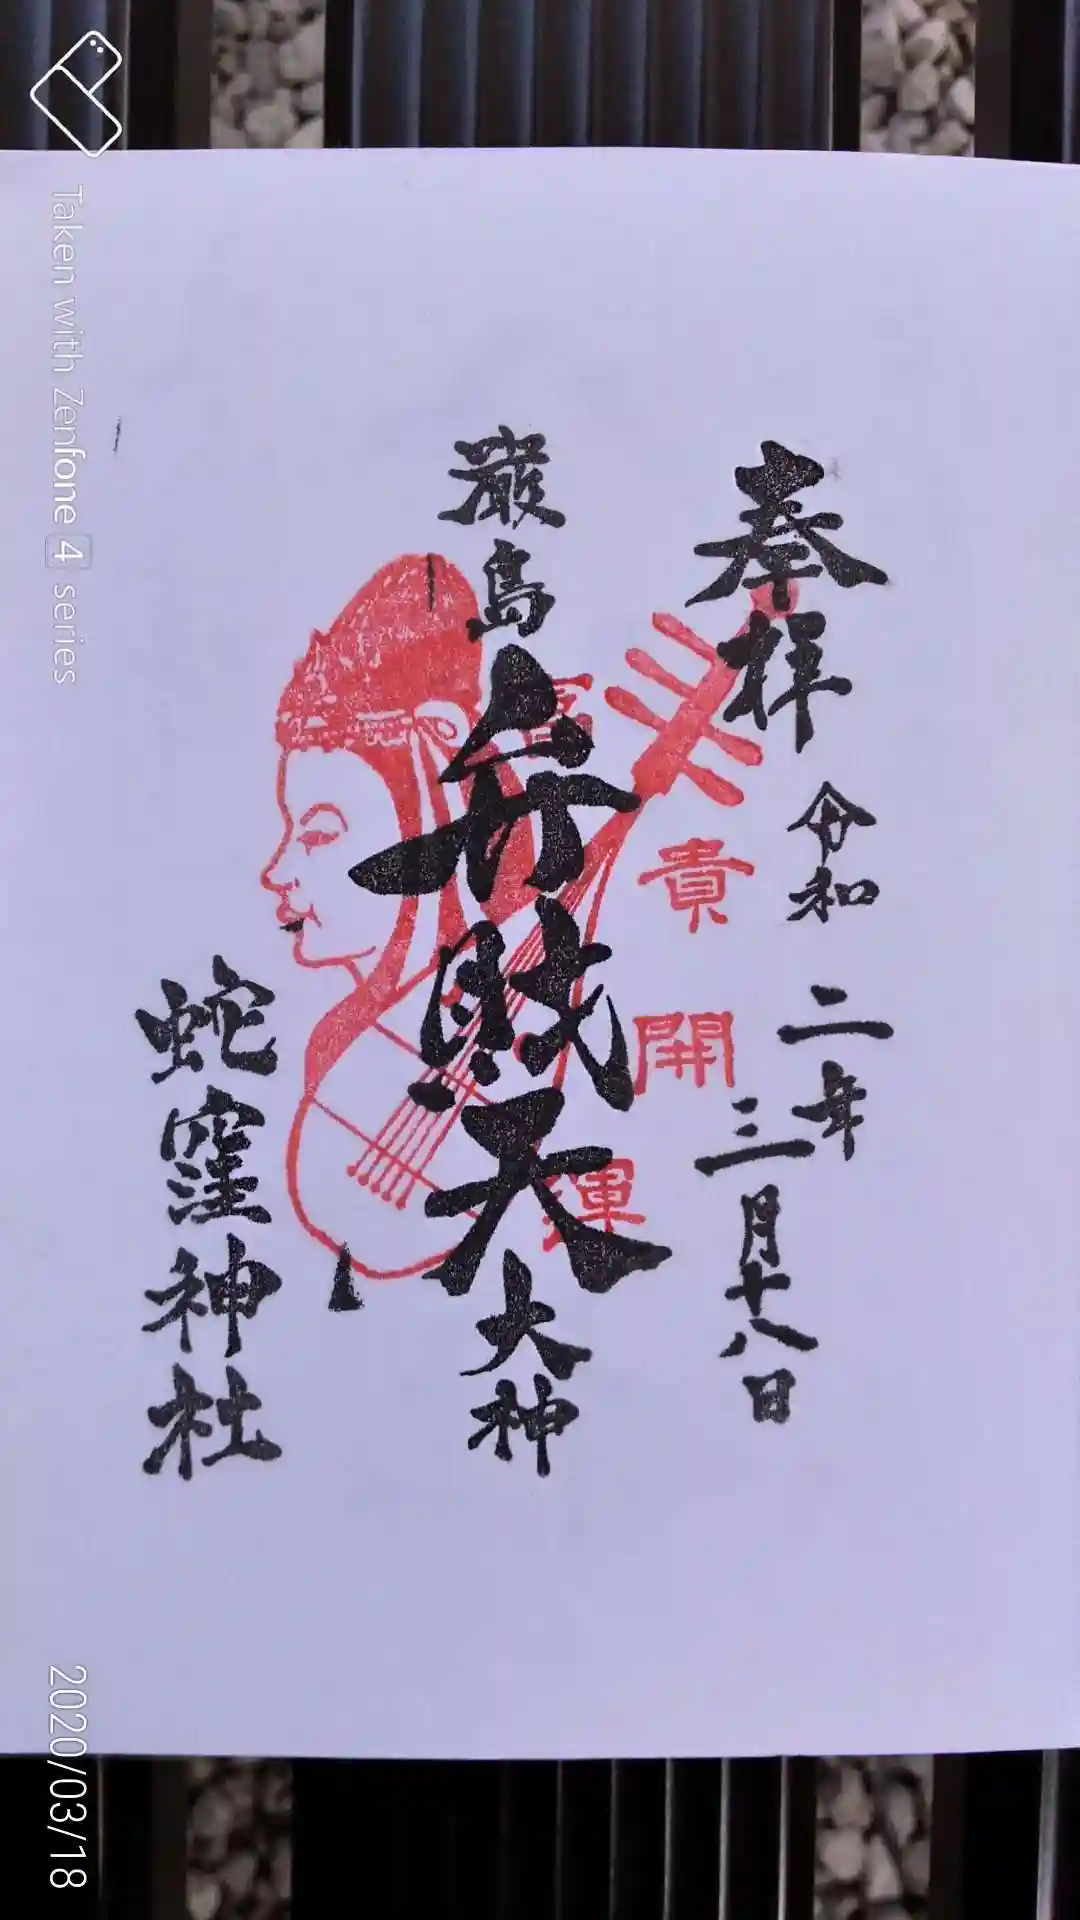 奉拝
令和二年
三月十八日
厳島
弁財天
大神
富
貴
開
運
蛇窪神社
Taken with Zenfone 4 series
2020/03/18